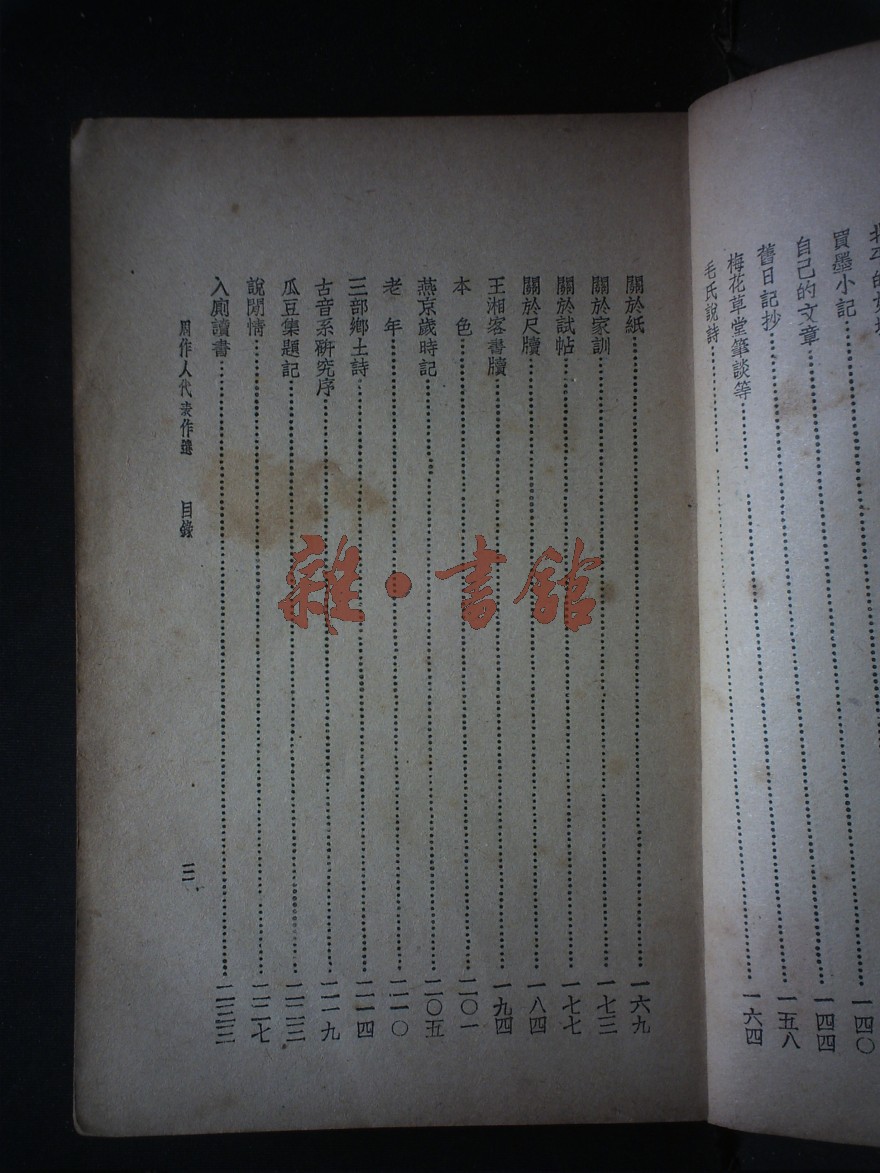 買墨小記
自己的文章……一四〇
舊日記抄……一四四
梅花草堂筆談等……一五八
毛氏說詩……一六四
關於紙……一六九
關於家訓……一七三
關於試帖……一七七
關於尺牘……一八四
王湘客書牘……一九四
本色……二〇一
燕京歲時記……二〇五
老年……二一〇
三部鄉土詩……二一四
古音系研究序……二一九
瓜豆集題記……二二三
說閒情……二二七
入廁讀書……二三三
周作人代表作選 目錄 三
雜·書館